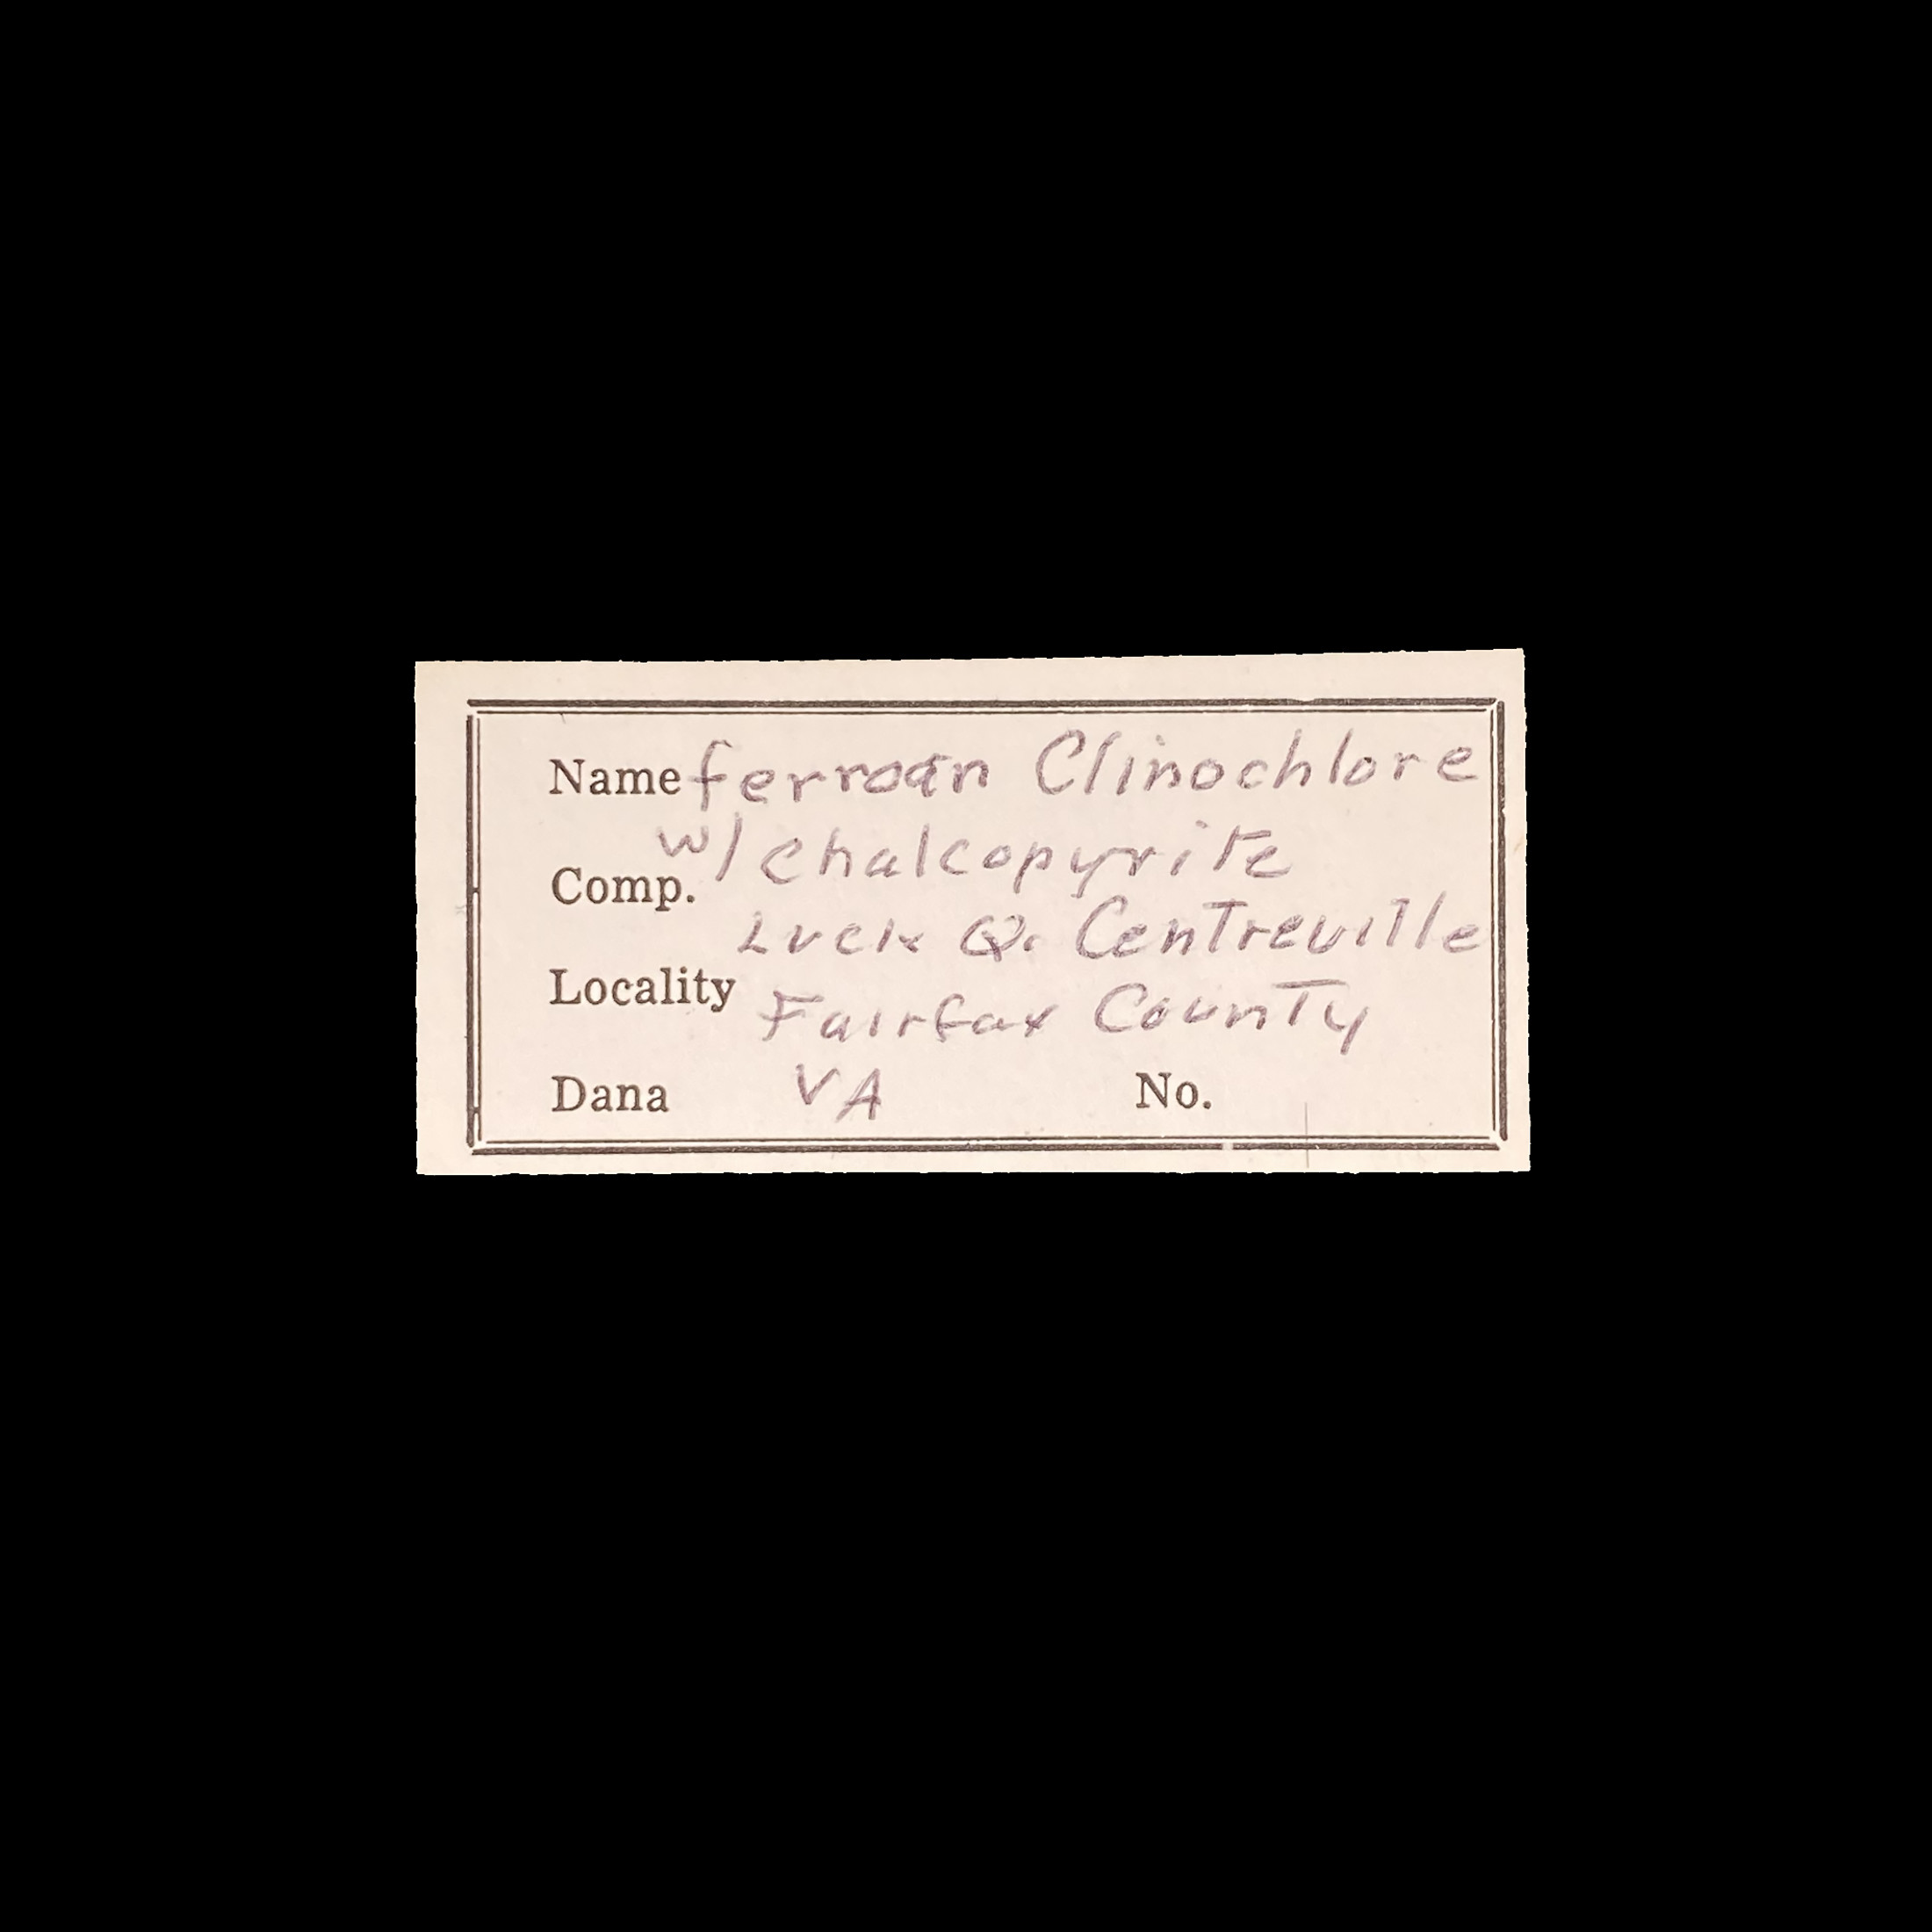 Name ferroan Clinochlore
w/ chalcopyrite
Comp.
Luck Q. Centreville
Locality
Fairfax County
Dana VA No.